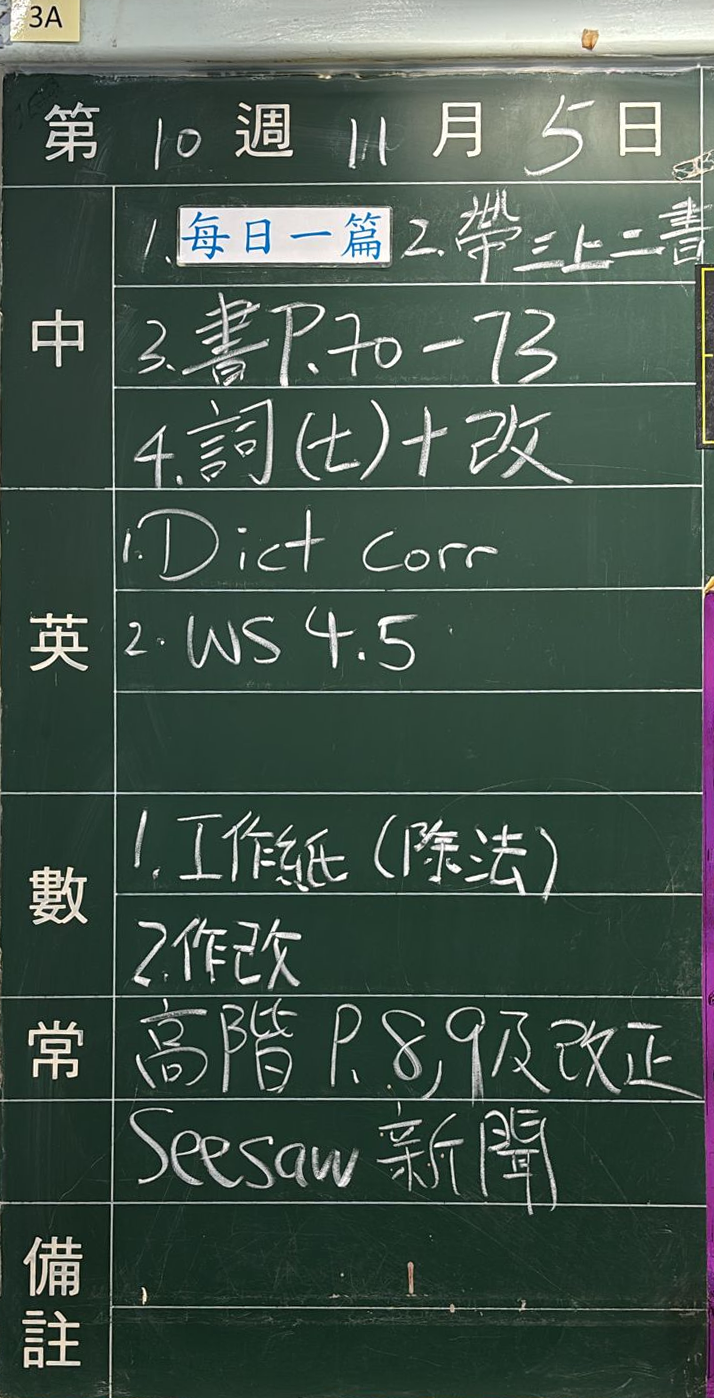 3A
第 10 週 11 月 5 日
中
1. 每日一篇 2. 帶三上二書
3. 書P.70-73
4. 詞(七)+改
英
1. Dict corr
2. WS 4.5
數
1. 工作紙(除法)
2. 作改
常
高階 P. 8,9及改正
Seesaw 新聞
備註